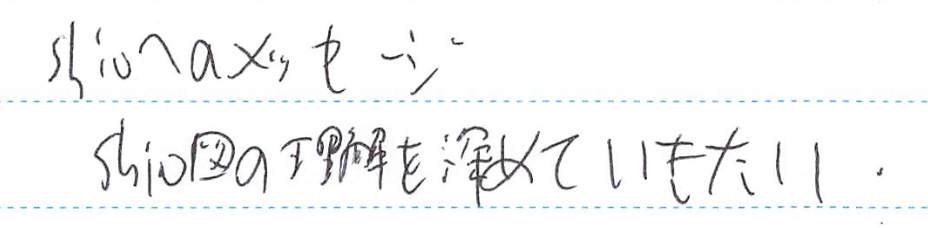 shioへのメッセージ
shio図の理解を深めていきたい.